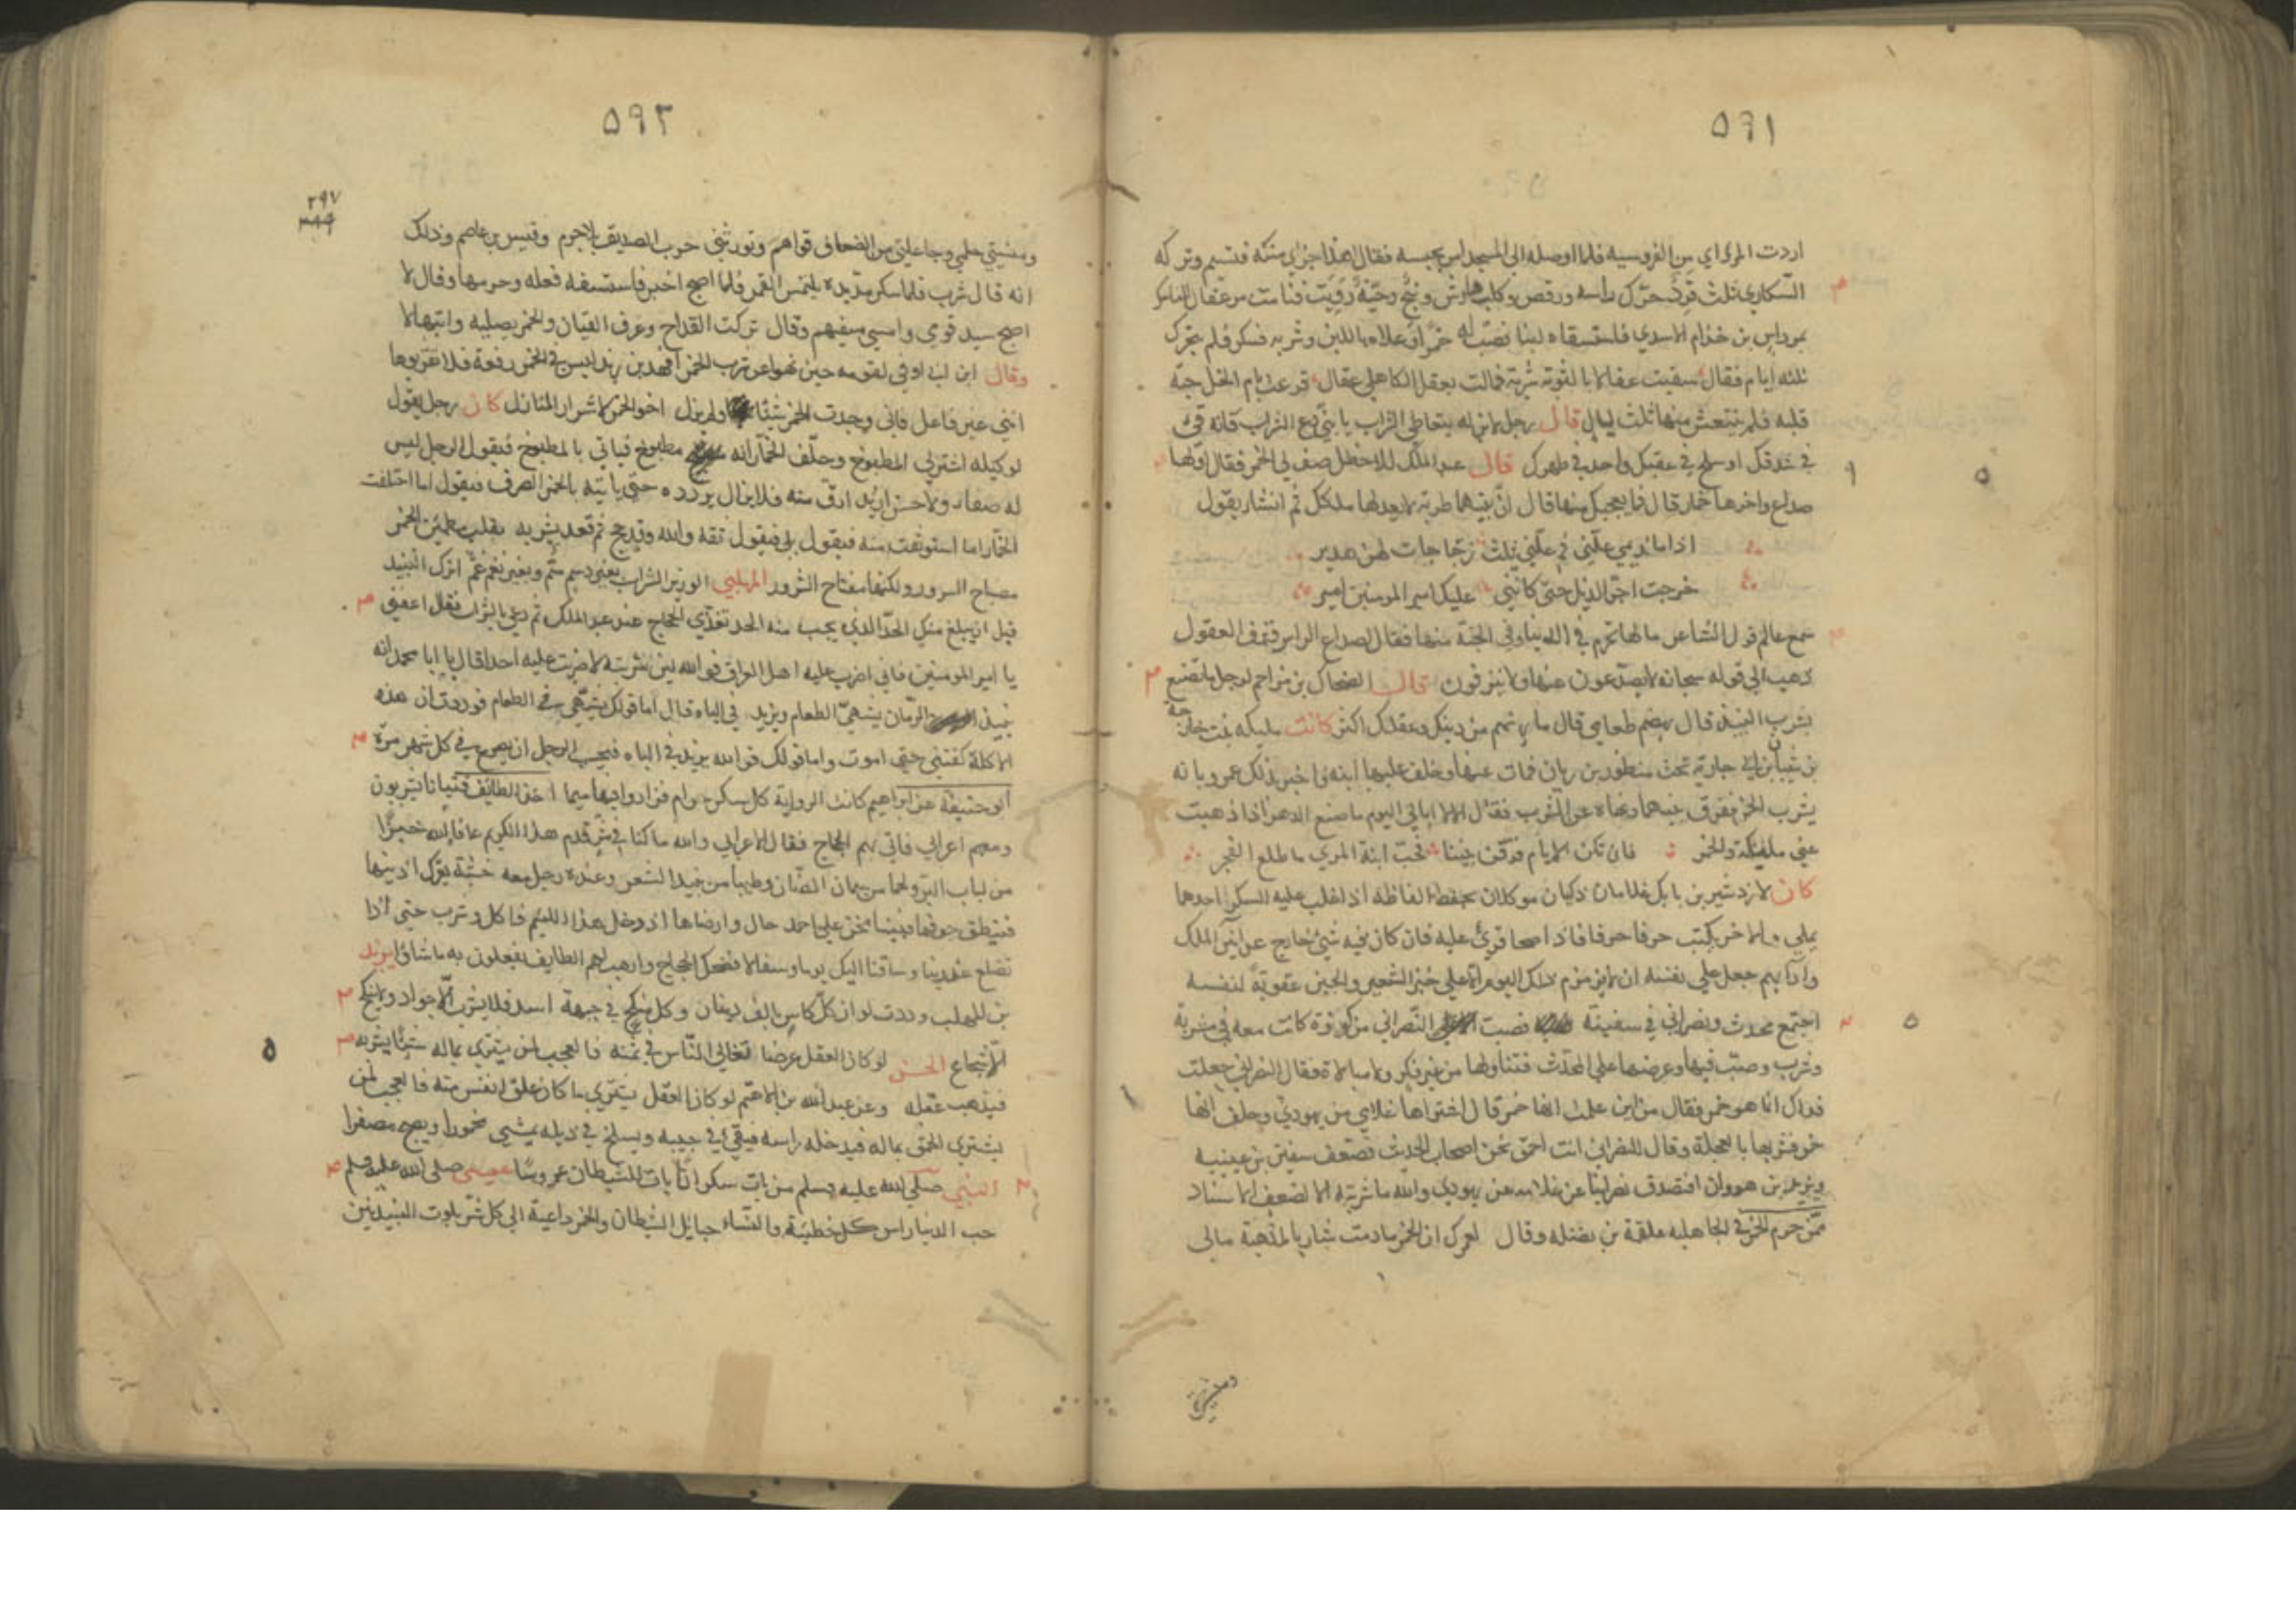 ٥٩١
اردت المراي من الفروسية فلما اوصله الى المسجد امر بحبسه فقال هذا جزاي منكه فتبسم وتركه
السكارى ثلث قرد حرك راسه ورقص وكلب هارش ونبح وحية رقيت فنامت مر عقال الناس
بمرداس بن خذام الاسدي فاستسقاه لبنا فصب له خمرا وعلاه باللبن وشربه فسكر فلم يتحرك
ثلثه ايام فقال سقيت عقالا بالثوية شربة فمالت بعقل الكاهلي عقال قرعت بام الخل حبة
قلبه فلم ينتعش منها ثلث ليال قال رجل لابن له يتعاطى الشراب يا بني دع الشراب فانه قيء
في شدقك او سلح في عقبك او حد في ظهرك قال عبد الملك للاخطل صف لي الخمر فقال اولها
صداع واخرها خمار قال فما يعجبك منها قال ان بينهما طربة لا يعدلها ملكك ثم انشا يقول
اذا ما نديمي علني ثم علني ثلث زجاجات لهن هدير
خرجت اجر الذيل حتى كانني عليك امير المومنين امير
سمع عالم قول الشاعر ما لها تحرم في الدنيا وفي الجنة منها فقال لصداع الراس ونزف العقول
ذهب الى قوله سبحانه لا يصدعون عنها ولا ينزفون قال الضحاك بن مزاحم لرجل ما تصنع
بشرب النبيذ قال يهضم طعامي قال ما يهضم من دينك وعقلك اكثر كانت مليكه بنت خارجة
بن شيبان بن ابي حارثة تحت منظور بن ريان فمات عنها وخلف عليها ابنه فاخبر بذلك عمر وبانه
يشرب الخمر ففرق بينهما ونهاه عن الشرب فقال الا لا ابالي اليوم ما صنع الدهر اذا ذهبت
عني مليكة والخمر فان تكن الايام فرقن بيننا فحب ابنة المري ما طلع الفجر
كان لاردشير بن بابك غلامان ذكيان موكلان بحفظ الفاظه اذا غلب عليه السكر احدهما
يملي والاخر يكتب حرفا حرفا فاذا صحا قرئ عليه فان كان فيه شي خارج عن ايين الملك
وادابهم جعل على نفسه ان لا يزمزم ذلك اليوم الا على خبز الشعير والجبن عقوبة لنفسه
اجتمع محدث ونصراني في سفينة فصب النصراني من ركوة كانت معه في مشربة
وشرب وصب فيها وعرضها على المحدث فتناولها من غير فكر ولا مبالاة فقال النصراني جعلت
فداك انما هو خمر فقال من اين علمت انها خمر قال اشتراها غلامي من يهودي وحلف انها
خمر فشربها بالعجلة وقال للنصراني انت احمق نحن اصحاب الحديث نضعف سفين بن عيينه
ويزيد بن هرون افنصدق نصرانيا عن غلامه عن يهودي والله ما شربته الا لضعف الاسناد
ممن حرم الخمر في الجاهلية علقمة بن نضلة وقال لعمرك ان الخمر ما دمت شاربا لمذهبة مالي
٥٩٢
٢٩٧
ومنسيتي حلمي وجاعلتي من الضعاف قواهم وتورثني حرب الصديق بلا جرم وقيس بن عاصم وذلك
انه قال شرب فلما سكر مد يده يلتمس القمر فلما اصبح اخبر فاستسفه فعله وحرمها وقال لا
اصبح سيد قومي وامسي سفيههم وقال تركت القداح وعزف القيان والخمر تصلية وابتهالا
وقال ابن ابي اوفى لقومه حين نهوا عن شرب الخمر بن زيد ليس في الخمر رفعة فلا تقربوها
انني غير فاعل فاني وجدت الخمر شينا ولم يزل اخو الخمر لاشرار المنازل كان رجل يقول
لوكيله اشتر لي المطبوخ وحلف الخمار انه مطبوخ فياتي بالمطبوخ فيقول الرجل ليس
له صفاء ولا حسن اريد ادق منه فلا يزال يردده حتى ياتيه بالخمر الصرف فيقول اما اختلفت
الخمار اما استوثقت منه فيقول بلى فيقول ثقه والله وقد حج ثم قعد يشربه بقلب مطمئن الخمر
مصباح السرور ولكنها مفتاح الشرور المهلبي الوزير الشراب بغير دسم سم وبغير نغم غم اترك النبيذ
قبل ان يبلغ منك الحد الذي يجب منه الحد تغدى الحجاج عند عبد الملك ثم دعي بالشراب فقال اعفني
يا امير المومنين فاني اضرب عليه اهل العراق فوالله لئن شربته لا ضربت عليه احدا قال يا ابا محمد انه
نبيذ الرمان يشهي الطعام ويزيد في الباه قال اما قولك يشهي في الطعام فوددت ان هذه
الاكلة كفتني حتى اموت واما قولك فوالله يزيد في الباه فبحسب الرجل ان يصرع في كل شهر مرة
ابو حنيفة عن ابراهيم كانت الرواية كل سكر حرام فزادوا فيها ميما اخذ الطائف فتيانا يشربون
ومعهم اعرابي فاتي بهم الحجاج فقال الاعرابي والله ما كنا في شر قدم هذا الكريم عافاه الله خبزا
من لباب البر ولحما من سمان الضان وطيبا من جيد الشعر وعنده رجل معه خشبة يعرك اذنيها
فينطق جوفها فبينما نحن على احمد حال وارضاها اذ دخل هذا اللئيم فاكل وشرب حتى اذا
تضلع عندنا وساقنا اليك يوما وسفالا فضحك الحجاج واوهب لهم الطائف يفعلون به ما شاؤا يزيد
بن المهلب وددت لو ان كل كاس بالف دينار وكل منكح في جبهة اسد فلا يشرب الا جواد ولا ينكح
الا شجاع الحسن لو كان العقل عرضا لتغالى الناس في ثمنه فالعجب لمن يشتري بماله شيئا يشربه
فيذهب عقله وعن عبد الله بن الاهتم لو كان العقل يشترى ما كان علق انفس منه فالعجب لمن
يشتري الحمق بماله فيدخله راسه فيقيء في جيبه ويسلح في ذيله يمشي محمورا ويصبح مصفرا
النبي صلى الله عليه وسلم من بات سكرانا بات للشيطان عروسا عيسى صلى الله عليه وسلم
حب الدنيا راس كل خطيئة والنساء حبايل الشيطان والخمر داعية الى كل شر